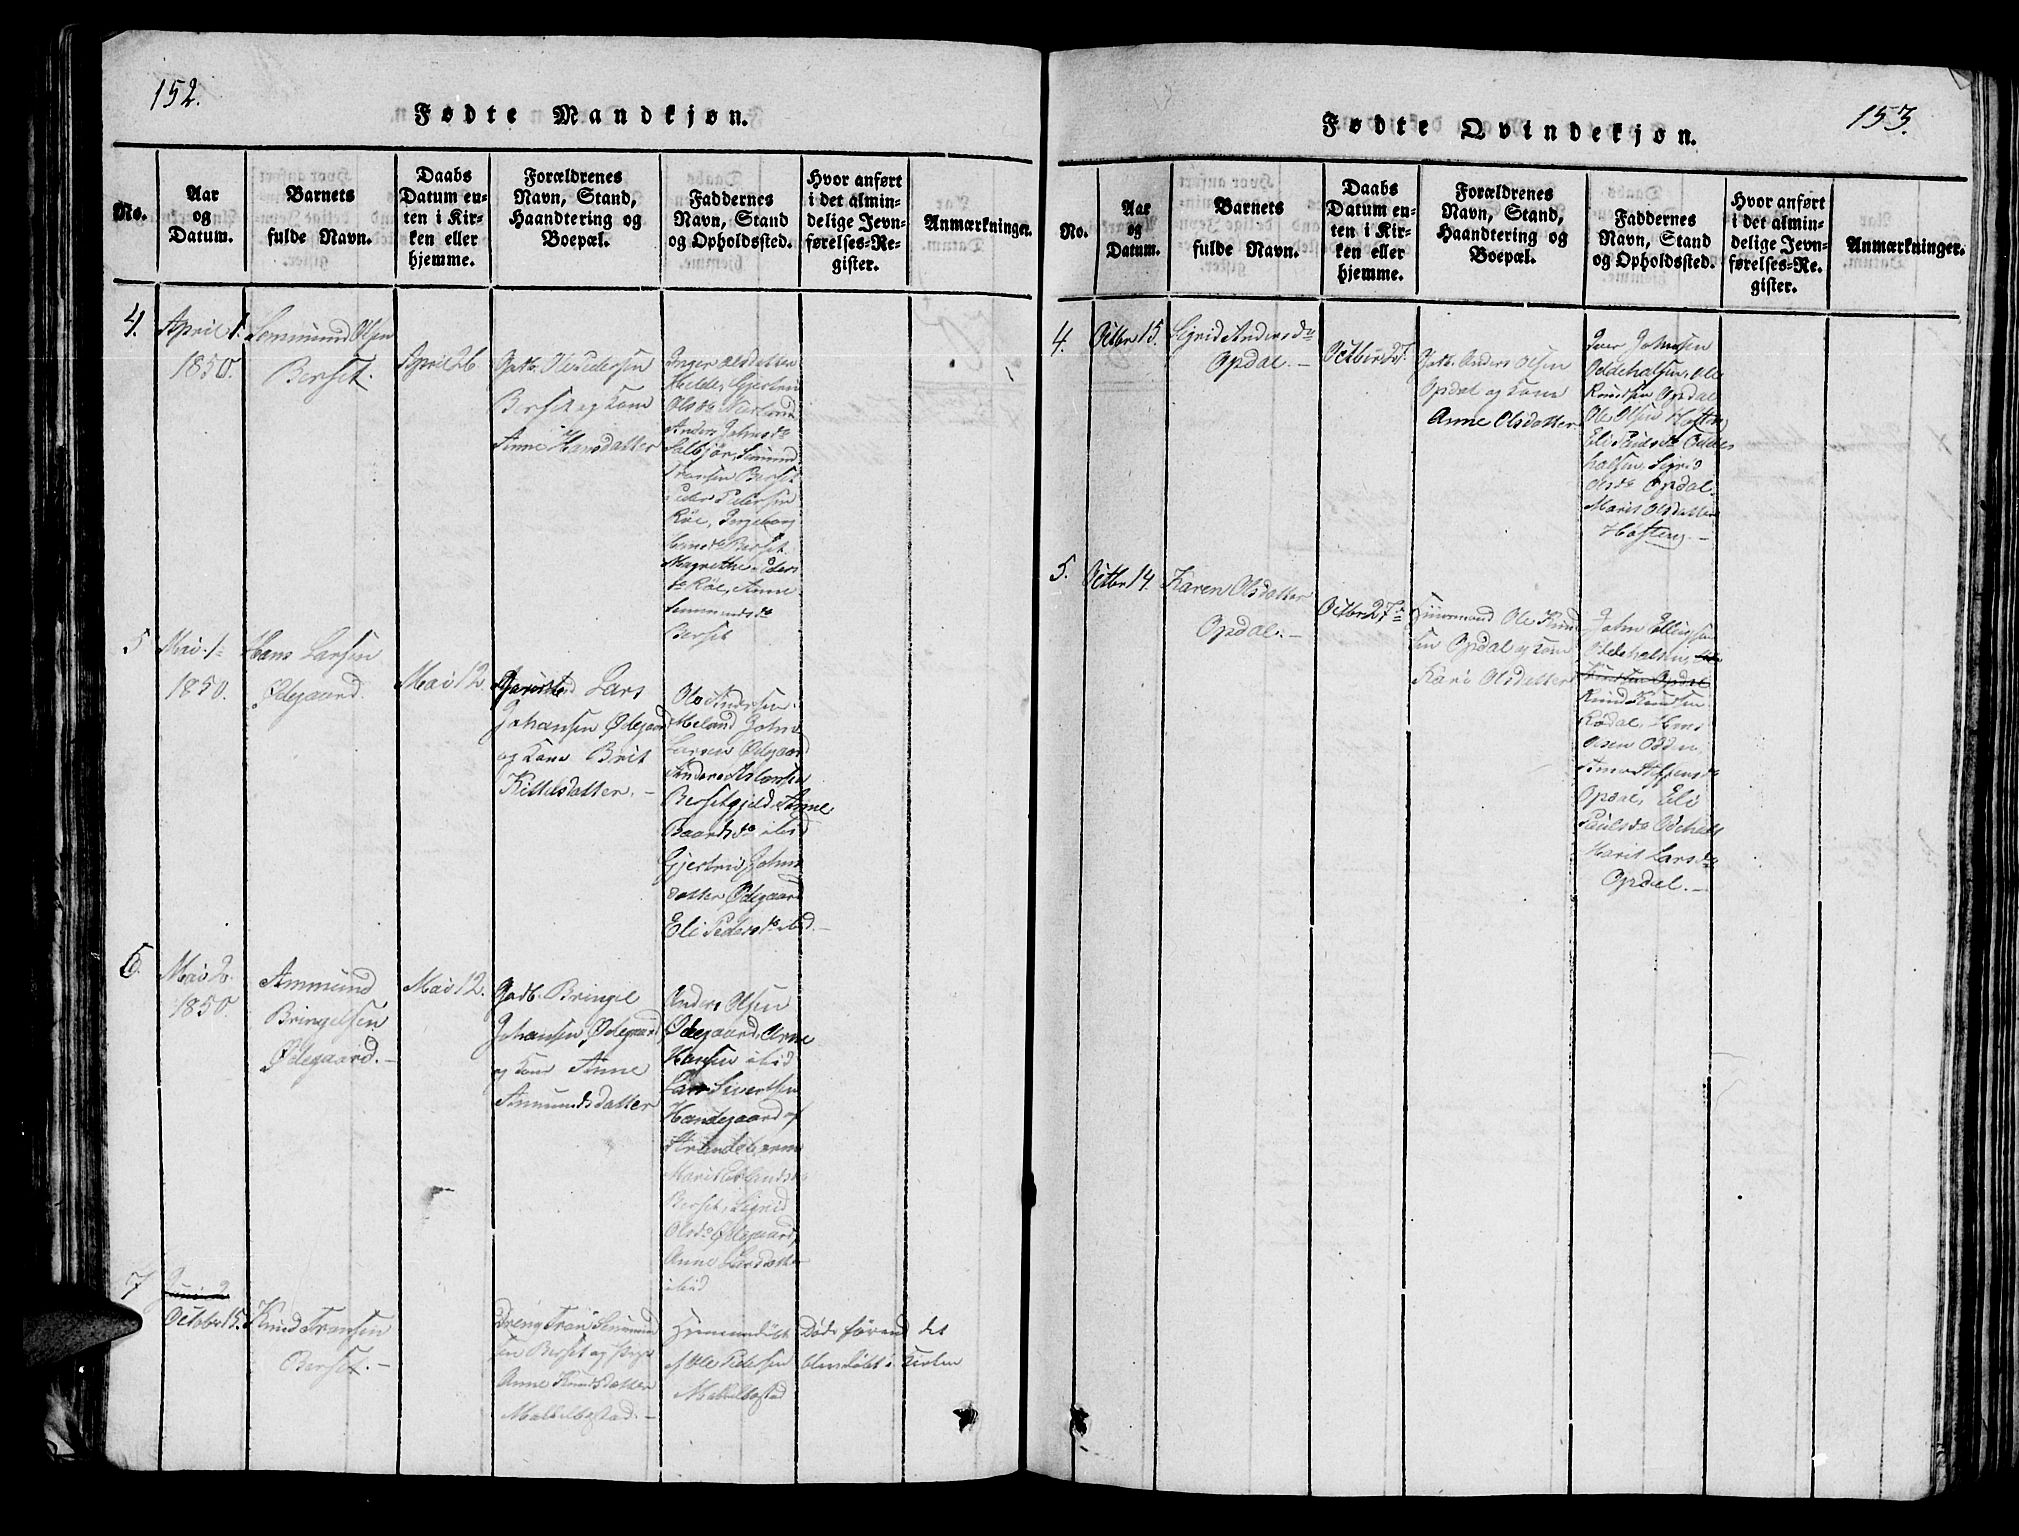 152.
Fødte Mandkjøn.
No.
Aar
og
Datum.
Barnets
fulde Navn.
Daabs
Datum en-
ten i Kir-
ken eller
hjemme.
Forældrenes
Navn, Stand,
Haandtering og
Boepæl.
Faddernes
Navn, Stand
og Opholdssted.
Hvor anført
i det almin-
delige Jevn-
førelses-Re-
gister.
Anmærkninger.
4.
April 1.
1850.
Semmund Olsen
Berset.
April 26
Gdb. Ole Pedersen
Berset og Kone
Anne Hansdatter
Inger Olsdatter
Helde, Gjertrud
Olsdr
Anders Johns
Salbjør, Semund
Transen Berset
Peder Pedersen
Röe, Ingeborg
Berset
Magrethe Peders
dr Röe, Anne
Semmundsdr
Berset
5
Mai 1
1850.
Hans Larsen
Ødegaard.
Mai 12.
Lars
Johansen Ødegaard
og Kone Brit
Kittelsdatter. —
Ole Andersen
Meland, John
Larsen Ødegaard
Anders Erlandsen
Bersetgjeld, Anne
Baardsdr ibid
Gjertrud Johns
datter Ødegaard
Eli Pedersdr ibid. —
6.
Mai 2.
1850.
Ammund
Bringelsen
Ødegaard. —
Mai 12.
Gadb. Bringel
Johansen Ødegaard
og Kone Anne
Amundsdatter
Anders Olsen
Ødegaard, Arne
Hansen ibid
Lars Sivertsen
Hundegaard af
Marit Erlandsdr
Berset, Sigrid
Olsdr Ødegaard,
Anne Larsdatter
ibid
7
Juni 2
October 15.
Knud Transen
Berset. —
Dreng Tran Semmund
sen Berset og Pige
Anne Knudsdatter
Makkelbostad. —
Hjemmedøbt
af Ole Pedersen
Makkelbostad
Døde førend det
blev døbt i Kirken
153.
Fødte Qvindekjøn.
No.
Aar
og
Datum.
Barnets
fulde Navn.
Daabs
Datum en-
ten i Kir-
ken eller
hjemme.
Forældrenes
Navn, Stand,
Haandtering og
Boepæl.
Faddernes
Navn, Stand
og Opholdssted.
Hvor anført
i det almin-
delige Jevn-
førelses-Re-
gister.
Anmærkninger.
4.
Octbr 15.
Sigrid Andersdr
Opdal. —
Octbr 27.
Gdb. Anders Olsen
Opdal og Kone
Anne Olsdatter
Iver Johnsen
Oddehalsen, Ole
Knudsen Opdal
Ole Olsen Hoften
Eli Paulsdr Odde
halsen, Sigrid
Olsdr Opdal
Marit Olsdatter
Hoften. —
5.
Octbr 14.
Karen Olsdatter
Opdal. —
Octbr 27
Huusmand Ole Knud
sen Opdal og Kone
Kari Olsdatter
John Ellingsen
Oddehalsen, Ole
Knudsen Opdal
Knud Knudsen
Rødal, Hans
Olsen Odden
Opdal, Eli
Paulsdr Odehals
Marit Larsdr
Opdal. —